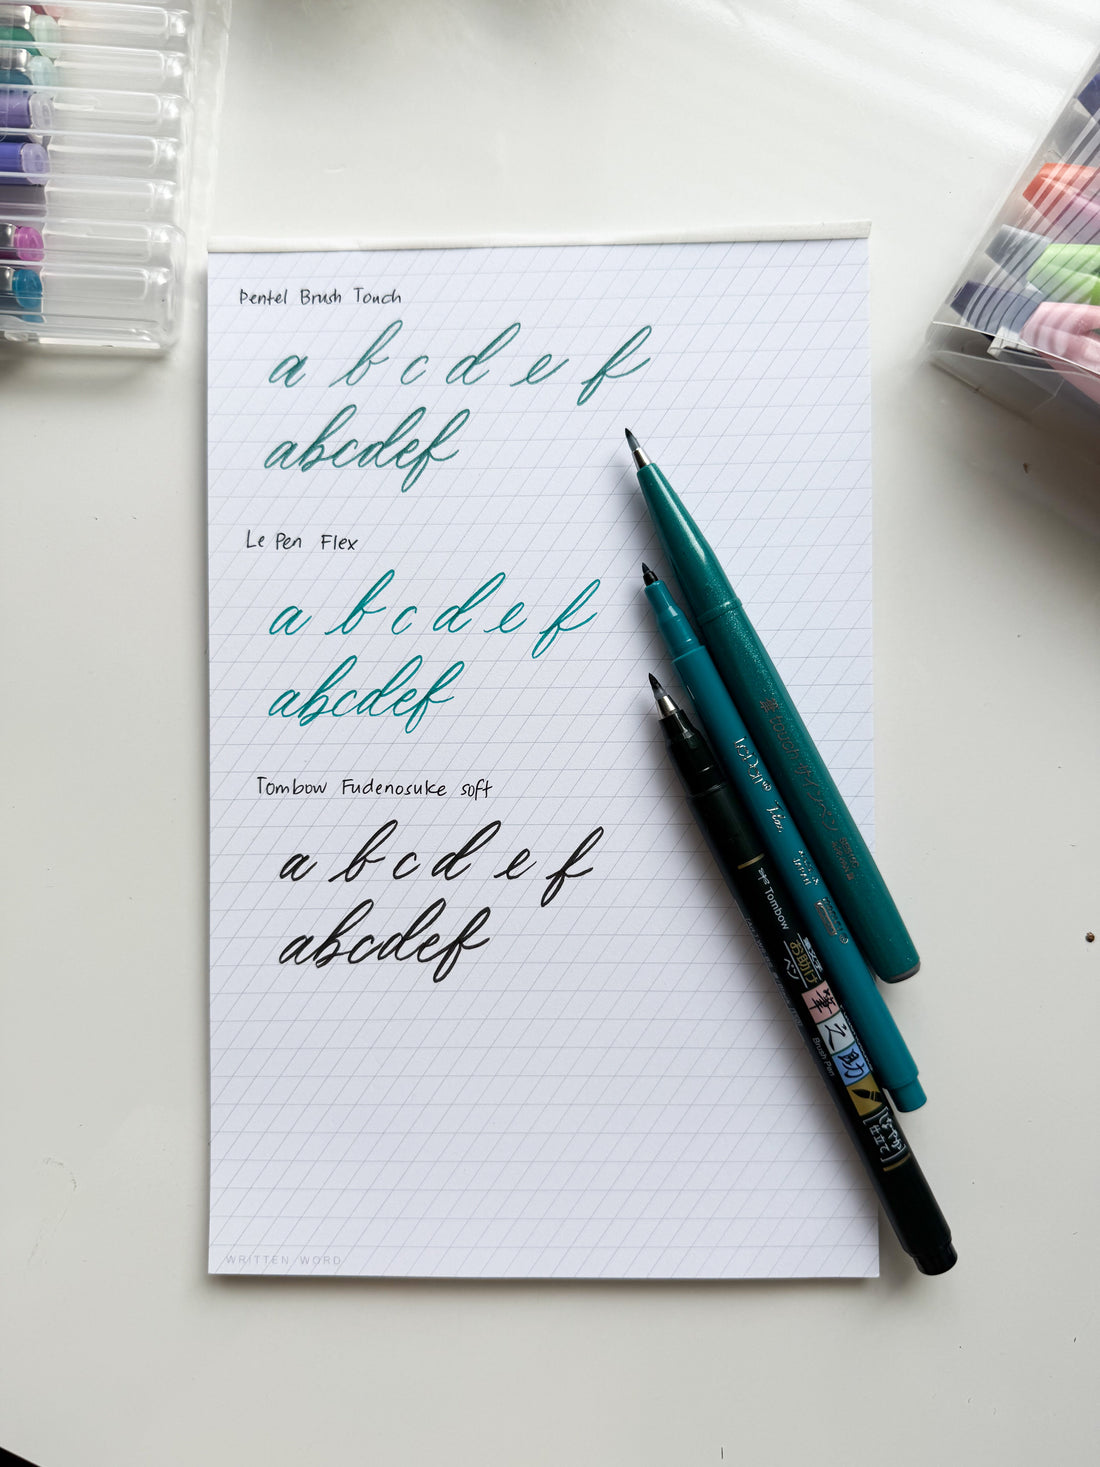 Pentel Brush Touch
a b c d e f
abcdef
Le Pen Flex
a b c d e f
abcdef
Tombow Fudenosuke soft
a b c d e f
abcdef
WRITTEN WORD
touch
Tombow
お助け
ペン
筆之助
Brush Pen
仕立て